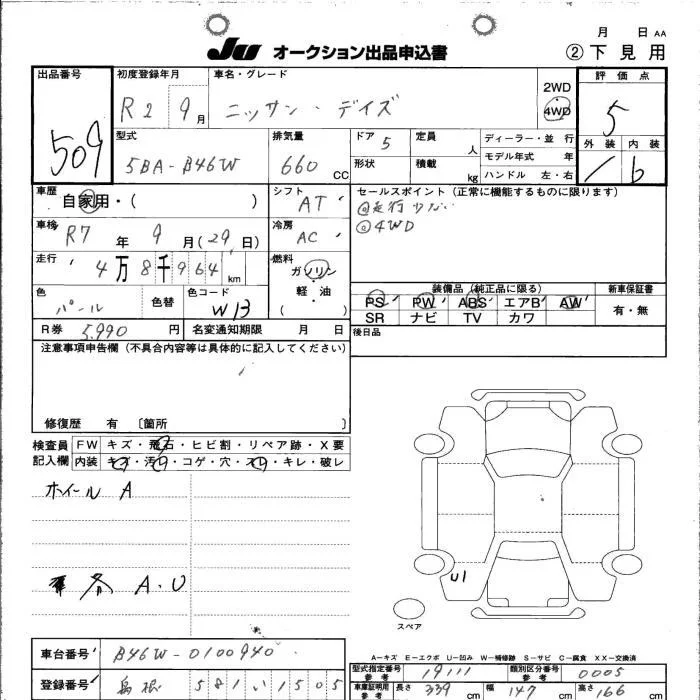 JU オークション出品申込書
月 日 AA
② 下見用
出品番号 509
初度登録年月 R2 9月
車名・グレード ニッサン・デイズ
2WD
4WD
評価点 5
外装 内装 b
型式 5BA-B46W
排気量 660 CC
ドア 5
形状
定員 人
積載 kg
ディーラー・並行
モデル年式 年
ハンドル 左・右
車歴 自家用・( )
シフト AT
セールスポイント(正常に機能するものに限ります)
◎走行少ない
◎4WD
車検 R7年 9月(29日)
冷房 AC
走行 4万8千964 km
燃料 ガソリン 軽・油 ( )
色 パール 色替
色コード W13
装備品(純正品に限る) 新車保証書
PS PW ABS エアB AW 有・無
SR ナビ TV カワ
R券 5,990円 名変通知期限 月 日
後日品
注意事項申告欄(不具合内容等は具体的に記入してください)
修復歴 有 〔箇所 〕
検査員記入欄
FW キズ・飛石・ヒビ割・リペア跡・X要
内装 キズ・汚レ・コゲ・穴・スレ・キレ・破レ
ホイール A
A.U
U1
スペア
A…キズ E…エクボ U…凹み W…補修跡 S…サビ C…腐食 XX…交換済
車台番号 B46W-0100940
登録番号 島根 581い1505
型式指定番号 参考 19111
類別区分番号 参考 0005
車庫証明用 参考 長さ 339 cm 幅 147 cm 高さ 166 cm